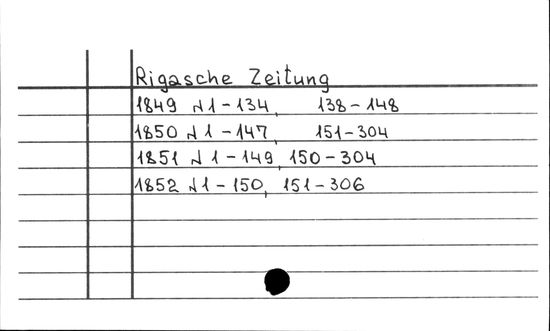 Rigasche Zeitung
1849 № 1-134, 138-148
1850 № 1-147, 151-304
1851 № 1-149, 150-304
1852 № 1-150, 151-306